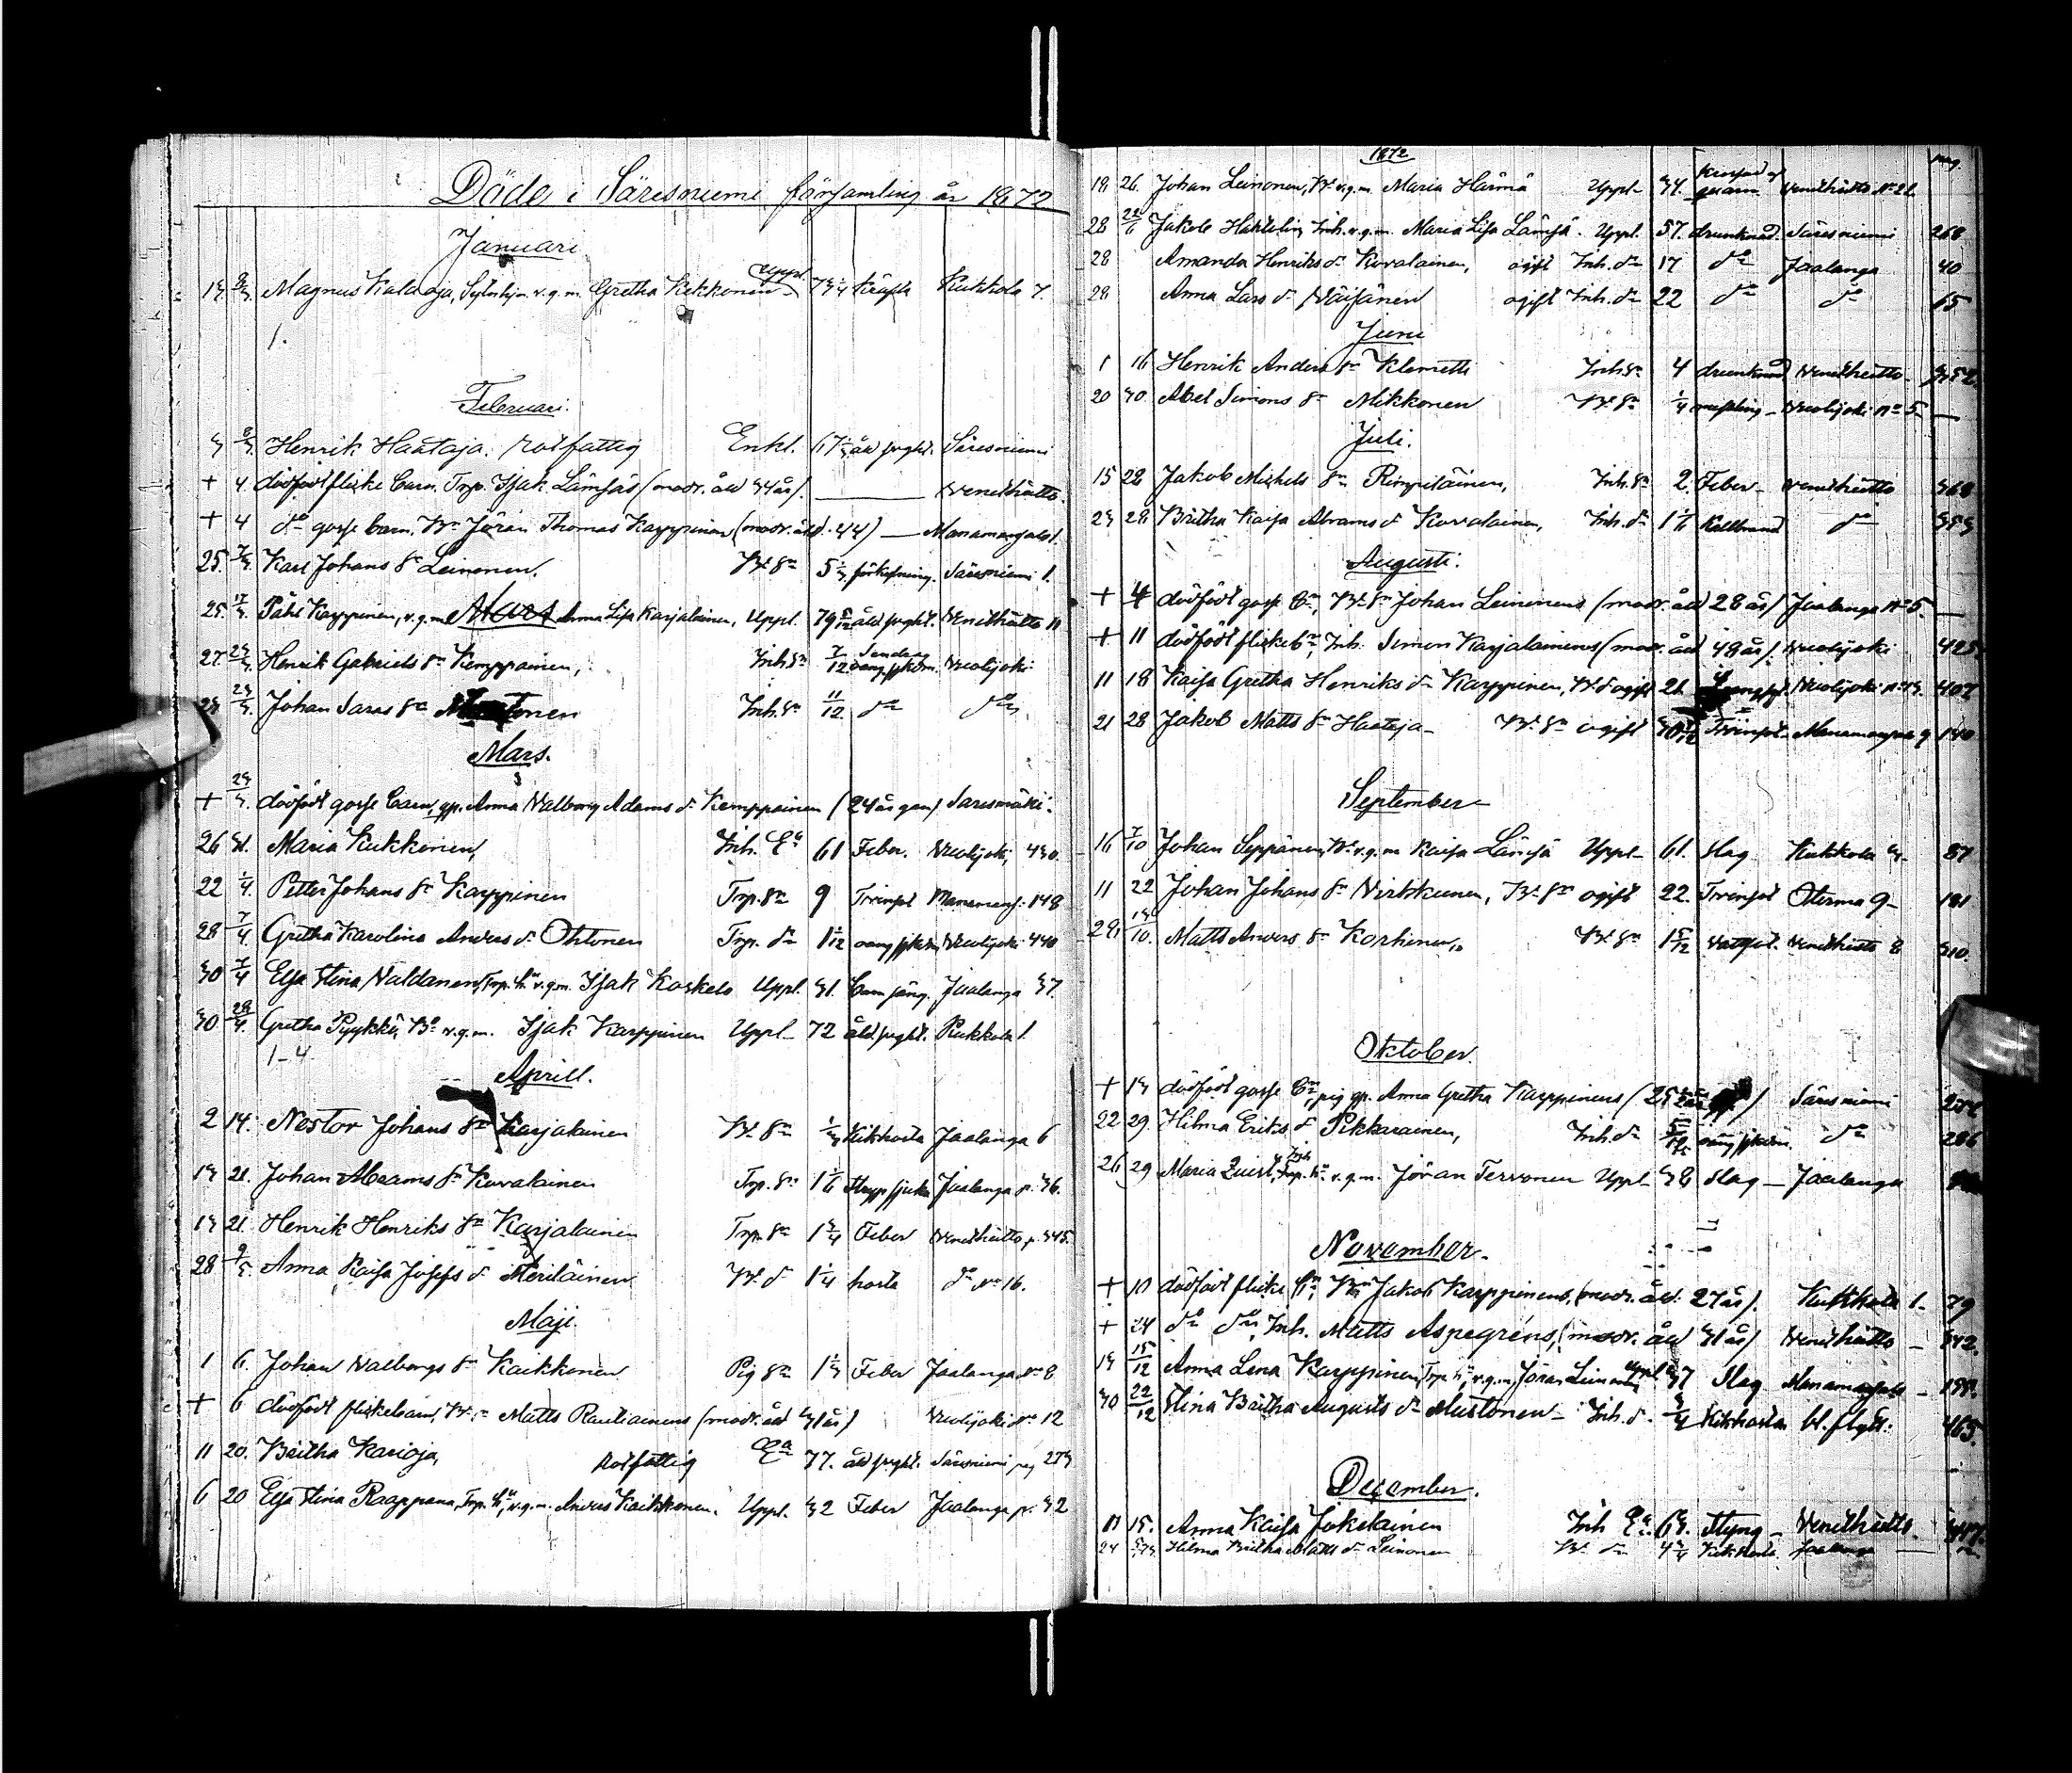 Döde i Säresniemi församling år 1872
Januari
13. 3/3. Magnus Kaldoja, Sytnihjon v.g.m. Gretha Kekkonen Uppl. 73 1/4 Kräfta Kukkola 7.
1.
Februari.
3 3/3. Henrik Haataja. rotfattig Enkl. 67 1/3 åld.svght. Säresniemi
+ 4. dödfödt flicke barn, Trp. Isak Lämsäs (modr. åld 34 år). Veneheitto.
+ 4 do gosse barn, Bn Jöran Thomas Karppinen (modr. åld. 44) Manamansalo 1.
25. 3/3. Karl Johans sn Leinonen. B. sn 5 1/3 förkylning. Säresniemi 1.
25. 17/3. Påhl Karppinen, v.g.m. Anna Lisa Karjalainen, Uppl. 79 5/12 åld.svght. Veneheitto 11
27. 23/3. Henrik Gabriels sn Kemppainen, Inh. sn 7/12 oäng.sjkdm. Vuolijoki
23 23/3. Johan Saras sn Inh. sn 11/12 do do
Mars.
+ 23/3. dödfödt gosse barn, qp. Anna Valborg Adams dr Kemppainen (24 år gam) Saresmäki.
26 31. Maria Kukkonen, Inh. Ea 61 Feber. Vuolijoki 430.
22 1/4. Petter Johans sn Karppinen Trp. sn 9 Tvinsot Manamans. 148
28 7/4. Gretha Karolina Anders dr Ohtonen Trp. dr 1 1/12 oäng sjkdm Vuolijoki 440
30 7/4 Elsa Stina Valdanen, Trp. h. v.g.m. Isak Koskelo Uppl. 31. Barnsäng. Jaalanga 37.
30 28/4. Gretha Pyykkö, Ba v.g.m. Isak Karppinen Uppl. 72 åld.svght. Kukkola 1.
1-4.
Aprill.
2 14. Nestor Johans sn Karjalainen B. sn 1/3 Kikhosta Jaalanga 6
13 21. Johan Abrams sn Kovalainen Trp. sn 1 1/6 Strypsjuka Jaalanga p. 36.
13 21. Henrik Henriks sn Karjalainen Trp. sn 1 3/4 Feber Veneheitto p. 345.
28 9/5. Anna Kaisa Josefs dr Meriläinen B. dr 1 1/4 hosta do No 16.
Maji.
1 6. Johan Valborgs sn Kaikkonen Pig. sn 1 1/3 Feber Jaalanga No 8
+ 6 dödfödt flickebarn, B. Matts Rautiainens (modr. åld 31 år) Vuolijoki No 12
11 20. Britha Karioja, rotfattig Ea 77. åld.svght. Säresniemi pag 273
6 20 Elsa Stina Raappana, Trp. h., v.g.m. Anders Kaikkonen. Uppl. 32 Feber Jaalanga p. 32
1872
pag.
18 26. Johan Leinonen, B. v.g.m. Maria Härmä Uppl. 34. Veneheitto No 22
28 22/6 Jakob Inh. v.g.m. Maria Lisa Lämsä. Uppl. 57. drunknad. Säresniemi 268
28 Amanda Henriks dr Kovalainen, ogift Inh. dr 17 do Jaalanga 40
28 Anna Lars dr Väisänen ogift Inh. dr 22 do do 65
Juni
1 16 Henrik Anders sn Klemetti Inh. sn 4 drunknad Veneheitto 352.
20 30. Abel Simons sn Mikkonen B. sn 1/4 messling Vuolijoki No 5
Juli.
15 28 Jakob Michels sn Rimpiläinen, Inh. sn 2. Feber Veneheitto 368
23 28 Britha Kaisa Abrams dr Kovalainen, Inh. dr 1 1/6 Kallbrand do 353
Augusti.
+ 4 dödfödt gosse bn, B. sn Johan Leinonens (modr. åld 28 år) Jaalanga No 5.
+ 11 dödfödt flickebn, Inh. Simon Karjalainens (modr. åld 48 år). Vuolijoki 425.
11 18 Kaisa Gretha Henriks dr Karppinen, B. d ogift 21. Vuolijoki No 13. 407
21 28 Jakob Matts sn Haataja B. sn ogift 30 Tvinsot Manamansalo 9 140
September
16 7/10 Johan Seppänen, B. v.g.m. Kaisa Lämsä Uppl. 61. slag Kukkola 3 87
11 22 Johan Johans sn Virkkunen, B. sn ogift 22. Tvinsot Oterma 9 181
28 13/10. Matts Anders sn Korhonen, B. sn 1 5/12 Vattsot Veneheitto 8 310.
Oktober.
+ 13 dödfödt gosse bn, pig qp. Anna Gretha Karppinens (25 år) Säresniemi
22 29. Hilma Eriks dr Pikkarainen, Inh. dr 5/12 oäng sjkdm. do 286
26 29 Maria v.g.m. Jöran Tervonen Uppl. 38 slag Jaalanga
November.
+ 10 dödfödt flicke bn, Bn Jakob Karppinens, (modr. åld. 27 år). Kukkola 1. 79
+ 24 do do, Inh. Matts Aspegréns, (modr. åld 31 år) Veneheitto 342.
13 15/12 Anna Lena Karppinen, Trp. h., v.g.m. Jöran Leinonen Uppl. 37 slag Manamansalo
30 22/12 Stina Britha Augusts dr Mustonen Inh. d. 3/4 Kikhosta bl. flytt. 465.
December.
11 15. Anna Kaisa Jokelainen Inh Ea. 63. Styng Veneheitto
24 Hilma Britha Matts dr Leinonen B. dr 4 3/4 Kikhosta Jaalanga